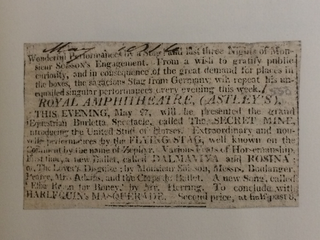 May 1816
Wonderful Performances by a Stag! and last three Nights of Mon-
sieur Soisson's Engagement. From a wish to gratify public
curiosity, and in consequence of the great demand for places in
the boxes, the sagacious Stag from Germany will repeat his un-
equalled singular performances every evening this week.
ROYAL AMPHITHEATRE, (ASTLEY'S).
THIS EVENING, May 27, will be presented the grand
Equestrian Burletta Spectacle, called The SECRET MINE,
introducing the United Stud of Horses. Extraordinary and
performances by the FLYING STAG, well known on the
Continent by the name of Zephyr. Various Feats of Horsemanship.
First time, a new Ballet, called DALMANZA and ROSINA
or, The Lover's Disguise; by Monsieur Soisson, Messrs. Boulanger,
and the Corps de Ballet. A new Song, called
by Mr. Herring. To conclude with
HARLEQUIN'S MASQUERADE. Second price, at half-past 8.